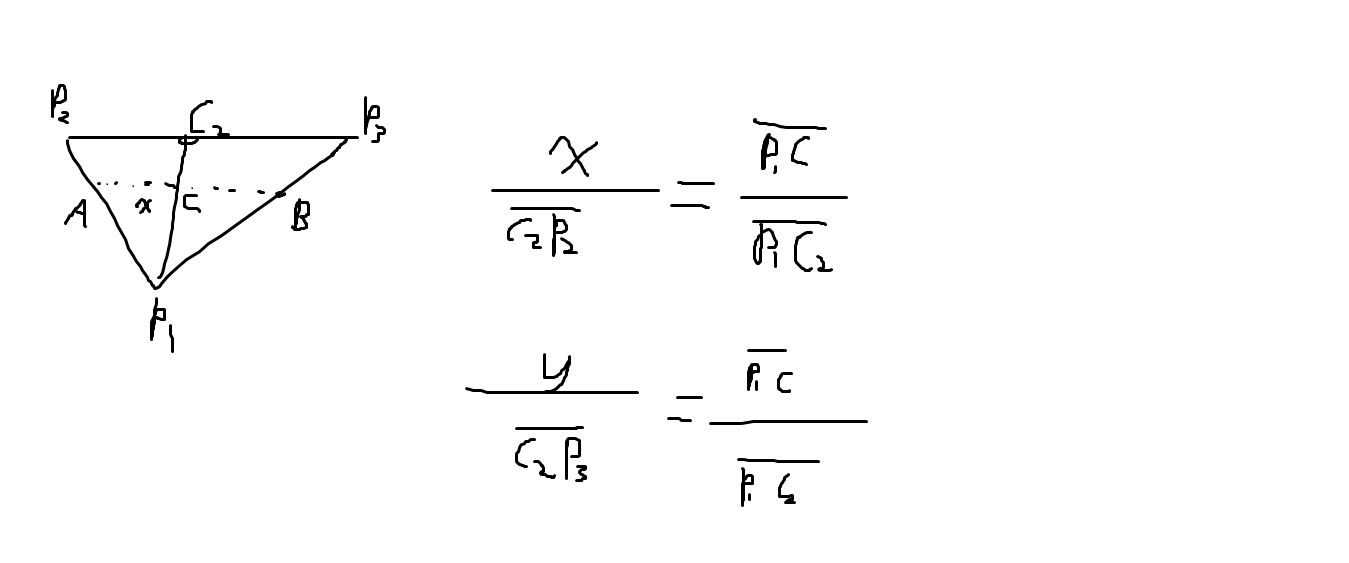 P₂ C₂ P₃
A x C B
P₁
x / C₂P₂ = P₁C / P₁C₂
y / C₂P₃ = P₁C / P₁C₂